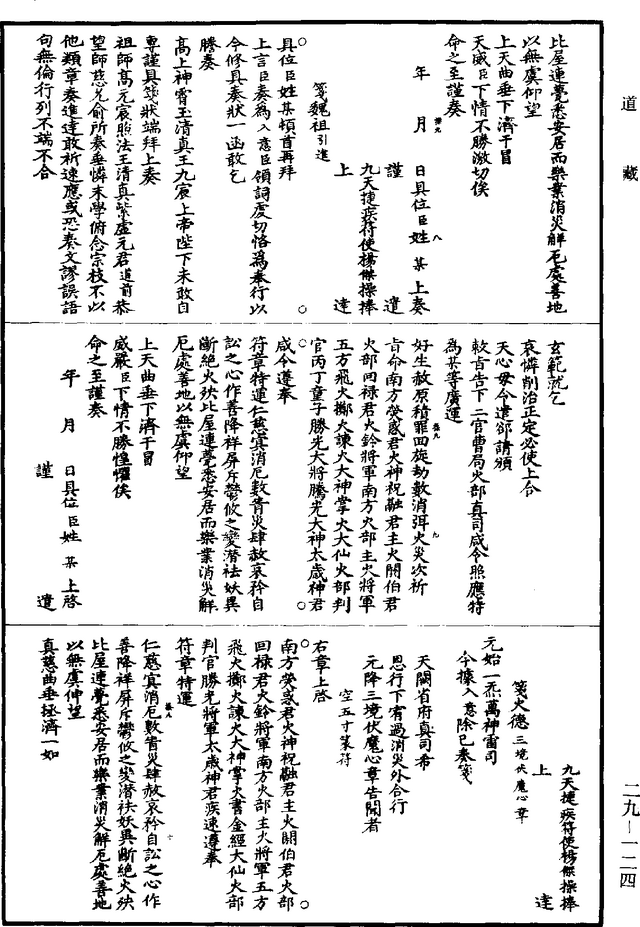 道藏
比屋連甍悉安居而樂業消災解厄處善地
以無虞仰望
上天曲垂下濟干冒
天威臣下情不勝激切俟
命之至謹奏
年 月 日具位臣姓 某 上奏
謹 遣
九天捷疾符使楊傑操捧
上 達
箋魏祖引進
具位臣姓某頓首再拜
上言臣奏為入意臣領詞虔切恪為奉行以
今修具奏狀一函敢乞
騰奏
高上神霄玉清真王九宸上帝陛下未敢自
專謹具箋狀端拜上奏
祖師高元宸照法王清真紫虛元君道前恭
望師慈允俞所奏垂憐末學俯念宗枝不以
他類章奏進達敢祈速應或恐奏文謬誤語
句無倫行列不端不合
玄範就乞
哀憐削治正定必使上合
天心毋令遣卻請頒
敕旨告下二官曹局火部真司咸令照應特
為某等廣運
好生赦原積罪四旋劫數消弭火災次祈
肯命南方熒惑君火神祝融君主火閼伯君
火部回祿君火鈴將軍南方火部主火將軍
五方飛火擲火諫火大神掌火大仙火部判
官丙丁童子勝光大將騰光大神太歲神君
咸令遵奉
符章特運仁慈寘消厄數眚災肆赦哀矜自
訟之心作善降祥屏斥鬱攸之變潛祛妖異
斷絕火殃比屋連甍悉安居而樂業消災解
厄處善地以無虞仰望
上天曲垂下濟干冒
威嚴臣下情不勝惶懼俟
命之至謹奏
年 月 日具位臣姓 某 上啓
謹 遣
九天捷疾符使楊傑操捧
上 達
箋火德三境伏魔心章
元始一炁萬神雷司
今據入意除已奏箋
天闕省府真司希
恩行下宥過消災外合行
元降三境伏魔心章告聞者
空五寸篆符
右章上啓
南方熒惑君火神祝融君主火閼伯君火部
回祿君火鈴將軍南方火部主火將軍五方
飛火擲火諫火大神掌火書金經大仙火部
判官勝光將軍太歲神君疾速遵奉
符章特運
仁慈寘消厄數眚災肆赦哀矜自訟之心作
善降祥屏斥鬱攸之變潛祛妖異斷絕火殃
比屋連甍悉安居而樂業消災解厄處善地
以無虞仰望
真慈曲垂拯濟一如
二九—一二四